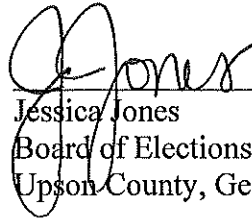 J Jones
Jessica Jones
Board of Elections
Upson County, Ge